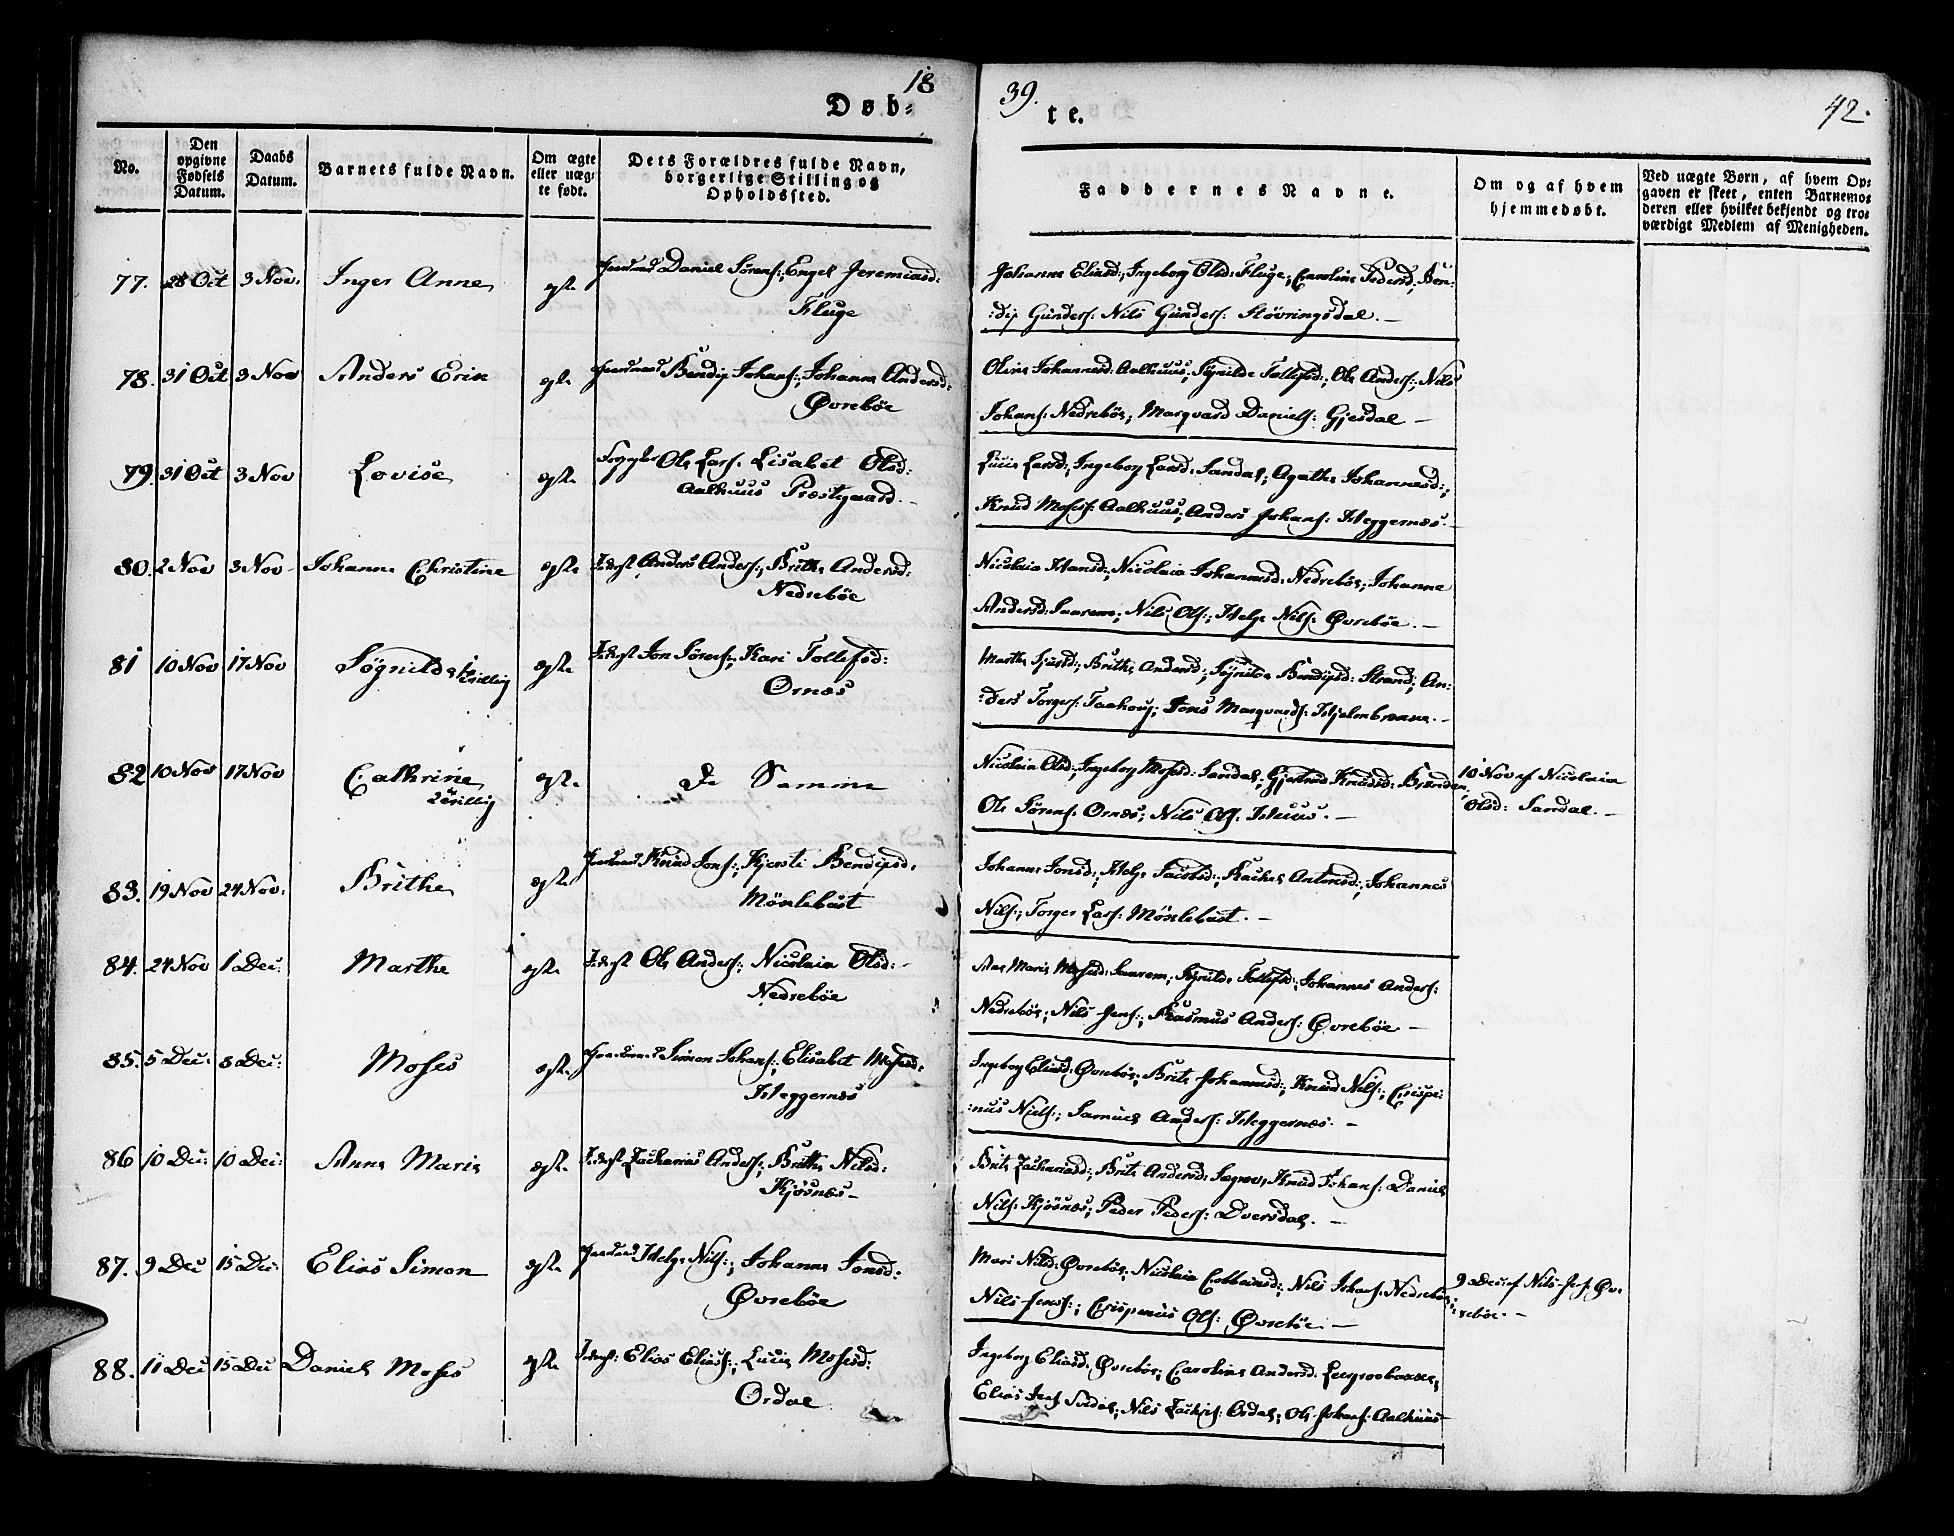 18
39.
42.
Døb-
te.
No.
Den opgivne Fødsels Datum.
Daabs Datum.
Barnets fulde Navn.
Om ægte eller uæg-te født.
Dets Forældres fulde Navn, borgerlige Stilling og Opholdssted.
Faddernes Navne.
Om og af hvem hjemmedøbt.
Ved uægte Børn, af hvem Op-gaven er skeet, enten Barnemo-deren eller hvilket bekjendt og tro-værdigt Medlem af Menigheden.
77. 28 Oct 3 Nov. Inger Anne egte Daniel Sørens:, Engel Jeremiasd:
Fluge
Johanne Eliasd:, Ingeborg Olsd: Fluge, Caroline Pedersd:, Ben-
:dix Gunders: Nils Gunders: Støvringsdal. —
78. 31 Oct 3 Nov Anders Erik egte Bendix Johans:, Johanne Andersd:
Øvrebøe
Oline Johannesd: Aalhuus, Synilde Tollefsd:, Ole Anders:, Nils
Johans: Nedrebøe, Marqvard Daniels: Gjesdal —
79. 31 Oct 3 Nov Lovise egte Ole Lars: Lisabet Olsd:
Aalhuus Præstgaard. —
Lucie Larsd:, Ingeborg Larsd: Sandal, Agathe Johannesd:,
Knud Moses: Aalhuus, Anders Johans: Heggernæs. —
80. 2 Nov 3 Nov Johanne Christine egte Inderst Anders Anders:, Brithe Andersd:
Nedrebøe
Nicolaia Hansd:, Nicolaia Johannesd: Nedrebøe, Johanne
Andersd: Aarem, Nils Ols:, Helge Nils: Øvrebøe. —
81 10 Nov 17 Nov Søgnilde tvilling egte Inderst Jon Sørens:, Kari Tollefsd:
Ornæs
Marthe Sjursd:, Brithe Andersd:, Synilde Bendixd: Strand, An-
:ders Torgers: Jens Marqvards: Hjelmbrække. —
82 10 Nov 17 Nov Cathrine tvillig egte De Samme
Nicolaia Olsd:, Ingeborg Mosesd: Sandal, Gjertrud Knudsd:
Ole Sørens: Ornæs, Nils Ols: Huus. —
10 Nov af Nicolaia
Olsd: Sandal. —
83. 19 Nov 24 Nov. Brithe egte Knud Jons:, Kjersti Bendixd.
Mönlebust
Johanne Jonsd:, Helge Jacobsd:, Rachel Antonsd:, Johannes
Nils:, Torger Lars: Mönlebust. —
84. 24 Nov 1 Dec: Marthe egte Inderst Ole Anders:, Nicolaia Olsd: —
Nedrebøe
Ane Marie Mosesd: Aarem, Synilde Tollefsd:, Johannes Anders:
Nedrebøe, Nils Jens:, Rasmus Anders: Øvrebøe —
85. 5 Dec: 8 Dec: Moses egte Simon Johans:, Elisabet Mosesd:
Heggernæs
Ingeborg Eliasd: Øvrebøe, Brite Johannesd:, Knud Nils:, Crispi-
:nus Niels:, Samuel Anders: Heggernæs. —
86 10 Dec: 10 Dec: Anne Marie egte Inderst Zacharias Anders:, Brithe Nilsd:
Kjøsnæs —
Brite Zachariasd:, Brite Andersd: Knud Johans: Daniel
Nils: Kjøsnæs, Peder Peders: Dversdal. —
87. 9 Dec 15 Dec: Elias Simon egte Helge Nils:, Johanne Jonsd:
Øvrebøe
Mari Nilsd: Øvrebøe, Nicolaia Colbeinsd:, Nils Johans: Nedrebøe
Nils Jens:, Crispinus Ols: Øvrebøe. —
9 Dec: af Nils Jens: Øv-
:rebøe. —
88. 11 Dec 15 Dec Daniel Moses egte Inderst: Elias Elias:, Lucie Mosesd:
Ordal
Ingeborg Eliasd: Øvrebøe, Caroline Andersd.
Elias Jens: Nils Zachris: Ordal, Ole Johans: Aalhuus —